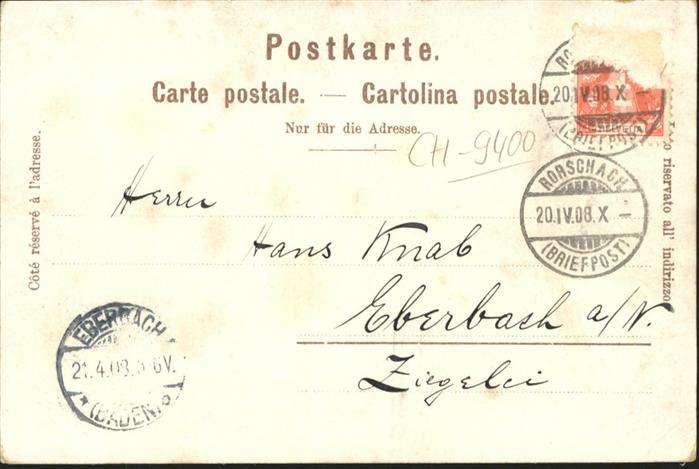 Postkarte.
Carte postale. — Cartolina postale.
Nur für die Adresse.
CH-9400
Côté réservé à l'adresse.
riservato all' indirizzo
HELVETIA
20.IV.08.X –
(BRIEFPOST)
RORSCHACH
20.IV.08.X –
(BRIEFPOST)
Herrn
Hans Knab
Eberbach a/N.
Ziegelei
EBERBACH
21.4.08. 6V.
(BADEN)